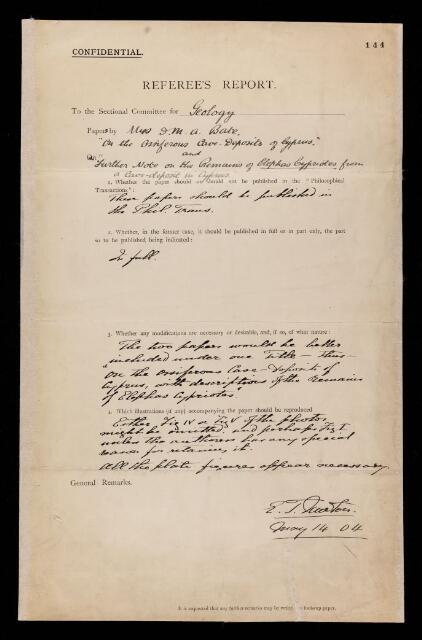 144
CONFIDENTIAL.
REFEREE'S REPORT.
To the Sectional Committee for Geology
Papers by Miss D. M. A. Bate,
"On the Ossiferous Cave-Deposits of Cyprus."
and
On "Further Note on the Remains of Elephas Cypriotes from
a Cave-deposit in Cyprus.
1. Whether the paper should or should not be published in the "Philosophical
Transactions":
These papers should be published in
the Phil. Trans.
2. Whether, in the former case, it should be published in full or in part only, the part
so to be published being indicated:
In full.
3. Whether any modifications are necessary or desirable, and, if so, of what nature:
The two papers would be better
included under one title – thus –
"On the Ossiferous Cave-Deposits of
Cyprus, with descriptions of the remains
of Elephas Cypriotes."
4. Which illustrations (if any) accompanying the paper should be reproduced
Either Fig IV or Fig V of the photos,
might be omitted, and perhaps Fig I
unless the authoress has any special
reason for retaining it.
All the plate figures appear necessary.
General Remarks.
E. T. Newton.
May 14 04
It is requested that any further remarks may be written on foolscap paper.